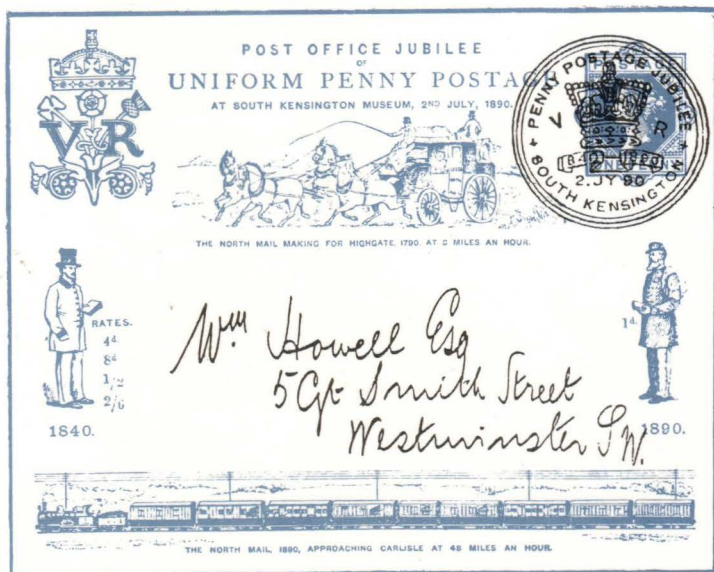 POST OFFICE JUBILEE
OF
UNIFORM PENNY POSTAGE
AT SOUTH KENSINGTON MUSEUM, 2ND JULY, 1890.
V R
PENNY POSTAGE JUBILEE
V R
1890
2.JY 90
SOUTH KENSINGTON
THE NORTH MAIL MAKING FOR HIGHGATE, 1790, AT 8 MILES AN HOUR.
RATES.
4d.
8d
1/2
2/6
1840.
1d.
1890.
Wm Howell Esq
5 Gt Smith Street
Westminster S.W.
THE NORTH MAIL, 1890, APPROACHING CARLISLE AT 48 MILES AN HOUR.